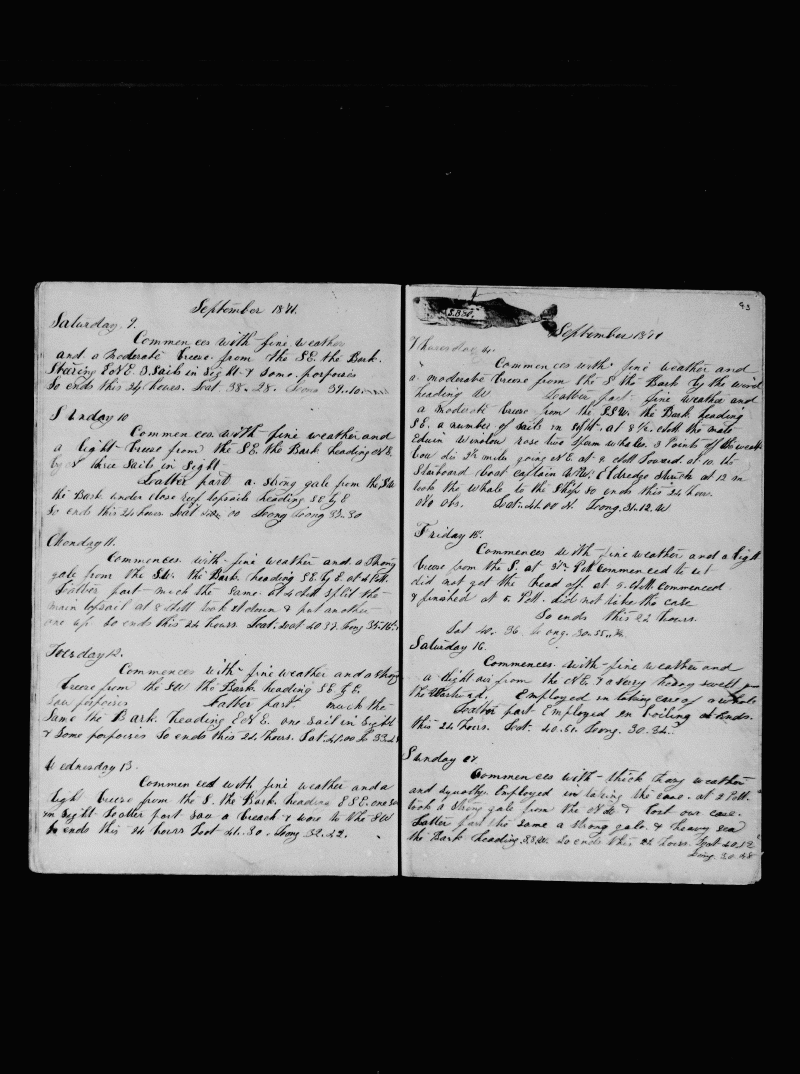 September 1871.
Saturday. 9.
Commences with fine weather
and a moderate breeze from the SE. the Bark.
Stearing E N E. 3 Sails in Sight & Some. porpoises
So ends this 24 hours. Lat. 38 - 28. Long 39.10.
Sunday 10
Commences with fine weather and
a light breeze from the SE. the Bark heading N E.
by N three Sails in Sight
Latter part a. strong gale from the SW
the Bark under close reef topsails heading S E by E
So ends this 24 hours Lat 00 Long 33.30
Monday 11.
Commences with fine weather and a Strong
gale from the SW. the Bark. heading S E. by E. at 4 P.M.
Latter part much the Same. at 4 AM split the
main topsail at 8 AM took it down & put another
one up so ends this 24 hours. Lat 40 32. Long 35.16
Tuesday 12.
Commences with fine weather and a strong
breeze from the SW the Bark. heading S E. by E.
Saw porpoises Latter part. much the
Same the Bark. heading E N E. one sail in Sight
& Some porpoises So ends this 24 hours. Lat. 41.00 Lo 33.2
Wednesday 13.
Commenced with fine weather and a
light breeze from the S. the Bark. heading E S E. one
in Sight Latter part saw a breach & wore to the SW
So ends this 24 hours Lat 41.30. Long 32.22.
93
S.Bbl.
September 1871
Commences with fine weather and
a moderate breeze from the S the Bark by the wind
heading W Latter part fine weather and
a modest breeze from the S.S.W. the Bark heading
SE. a number of sails in sight. at 8 1/2. AM the mate
Edwin Winslow rose two Spurm whales 3 Points off the weath
bow dis 3 1/2 miles going N E. at 9. AM Lowerd. at 10. the
Starboard boat captain Eldredge struck at 12 m
took the whale to the Ship so ends this 24 hours.
No obs. Lat. 41.00 N. Long. 31.12. W
Friday 15.
Commences with fine weather and a light
breeze from the S. at 3 P.M commenced to cut
did not get the head of. at 5. AM. commenced
& finished at 5. P.M. did not take the case
So ends this 24 hours.
Lat 40. 36. Long. 30.55.
Saturday 16.
Commences. with fine weather and
a light air from the N E. & a very heavy swell from
the Westward. Employed in taking care of a whale
Latter part Employed in Boiling so ends.
this 24 hours. Lat. 40.51. Long. 30.34.
Sunday 17
Commences with thick hazy weather
and squally. Employed in taking the case. at 2 P.M.
took a strong gale from the N W & lost our case.
Latter part the same a strong gale. & heavy sea
the Bark heading S.S.W. so ends this 24 hours. Lat 40.12
Long. 30.48